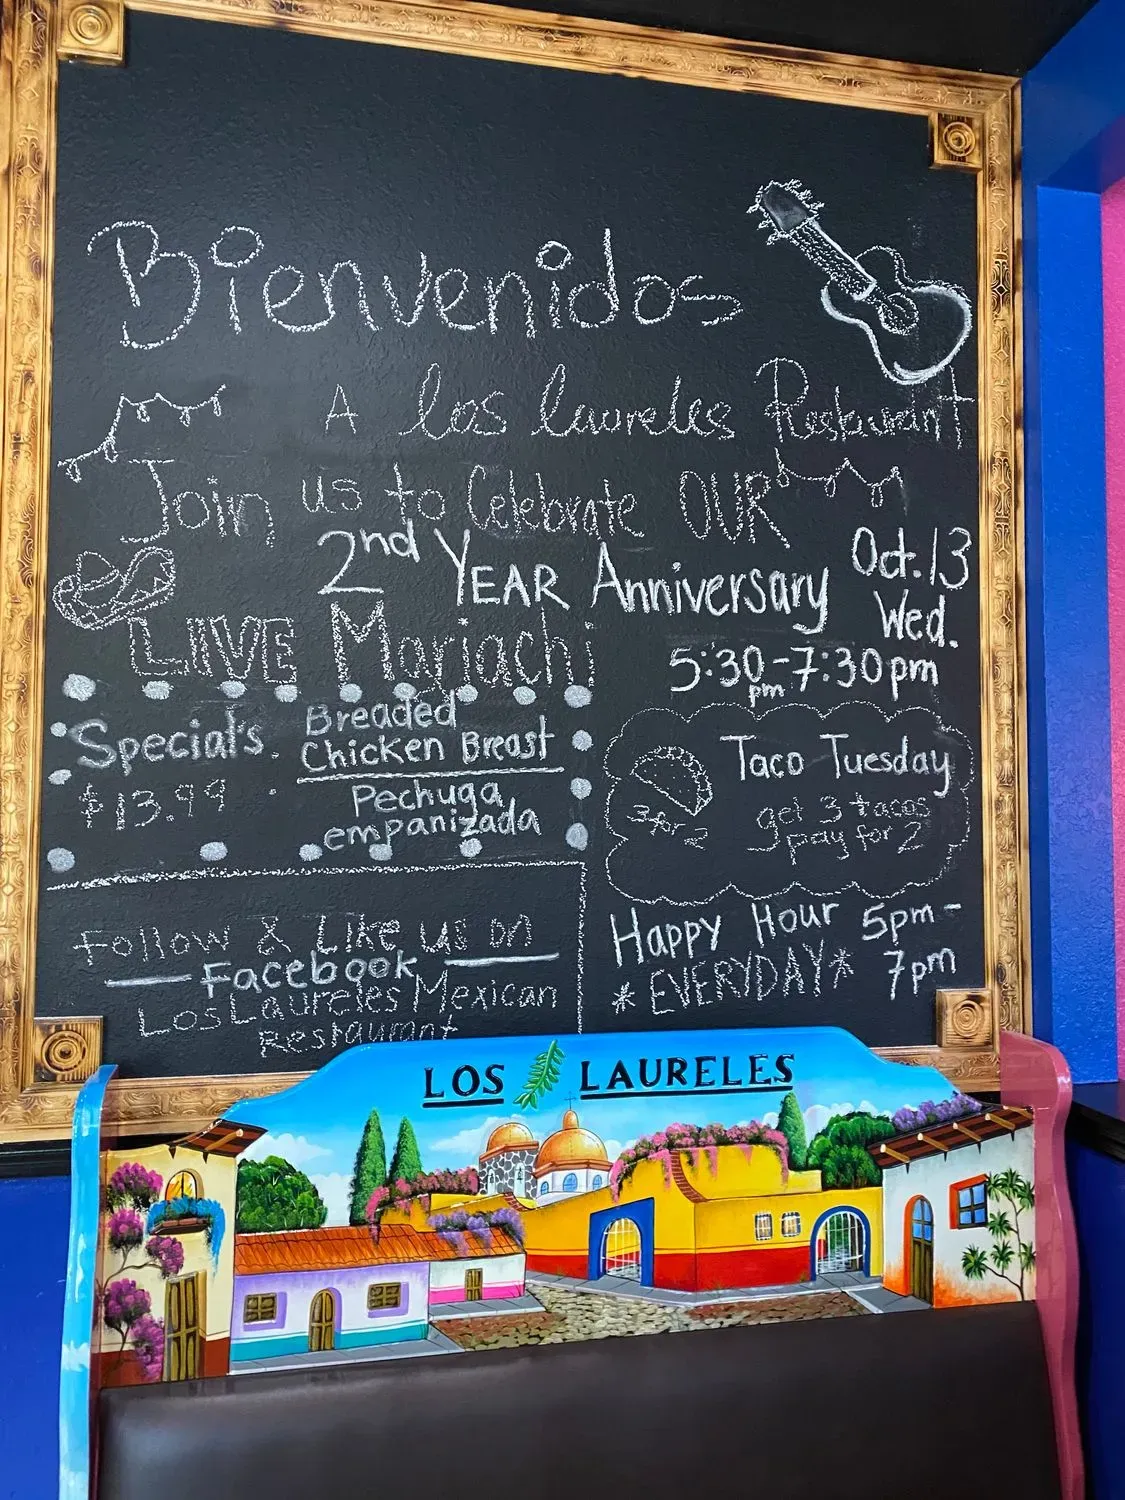 Bienvenidos
A los laureles Restaurant
Join us to Celebrate OUR
2nd YEAR Anniversary
Oct. 13
Wed.
LIVE Mariachi
5:30pm-7:30pm
Special's. Breaded
Chicken Breast
$13.99
Pechuga
empanizada
Taco Tuesday
3 for 2
get 3 tacos
pay for 2
Follow & Like us on
Facebook
Los Laureles Mexican
Restaurant
Happy Hour 5pm-
*EVERYDAY* 7pm
LOS LAURELES